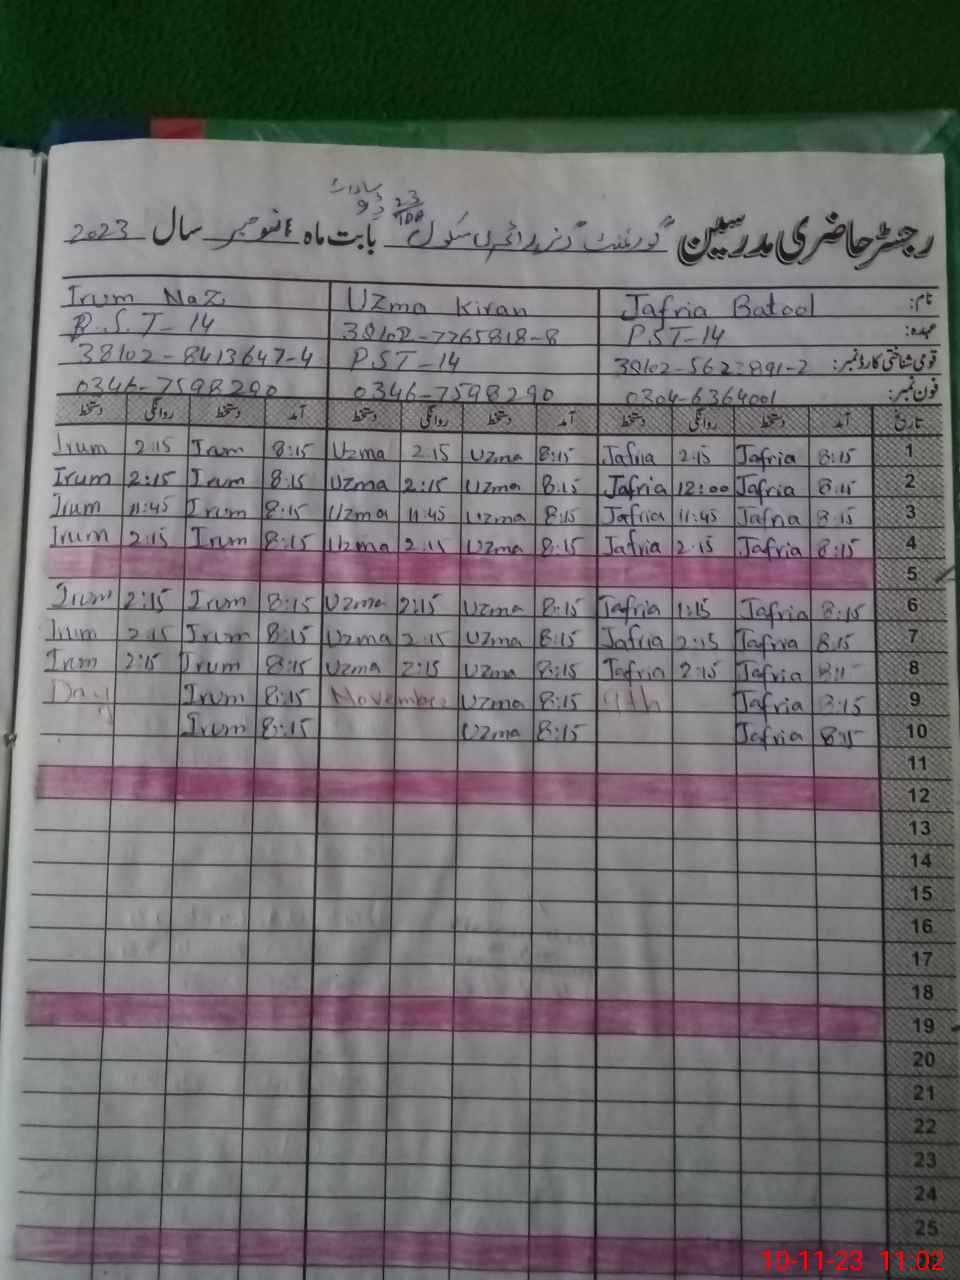 23
TDA
رجسٹر حاضری مدرسین گورنمنٹ گرلز پرائمری سکول بابت ماہ نومبر سال 2023
نام: Jafria Batool Uzma Kiran Irum Naz
عہدہ: P.S.T-14 38102-7265818-8 P.S.T-14
قومی شناختی کارڈ نمبر: P.S.T-14 38102-8413647-4
فون نمبر: 0304-6364001 0346-7598290 0346-7598290
تاریخ آمد دستخط روانگی دستخط آمد دستخط روانگی دستخط آمد دستخط روانگی دستخط
Irum 2:15 Irum 8:15 Uzma 2:15 Uzma 8:15 Jafria 2:15 Jafria 8:15 1
Irum 2:15 Irum 8:15 Uzma 2:15 Uzma 8:15 Jafria 12:00 Jafria 8:15 2
Irum 11:45 Irum 8:15 Uzma 11:45 Uzma 8:15 Jafria 11:45 Jafria 8:15 3
Irum 2:15 Irum 8:15 Uzma 2:15 Uzma 8:15 Jafria 2:15 Jafria 8:15 4
5
Irum 2:15 Irum 8:15 Uzma 2:15 Uzma 8:15 Jafria 1:15 Jafria 8:15 6
Irum 2:15 Irum 8:15 Uzma 2:15 Uzma 8:15 Jafria 2:15 Jafria 8:15 7
Irum 2:15 Irum 8:15 Uzma 2:15 Uzma 8:15 Jafria 2:15 Jafria 8:15 8
Day Irum 8:15 November Uzma 8:15 9th Jafria 8:15 9
Irum 8:15 Uzma 8:15 Jafria 8:15 10
11
12
13
14
15
16
17
18
19
20
21
22
23
24
25
10-11-23 11:02